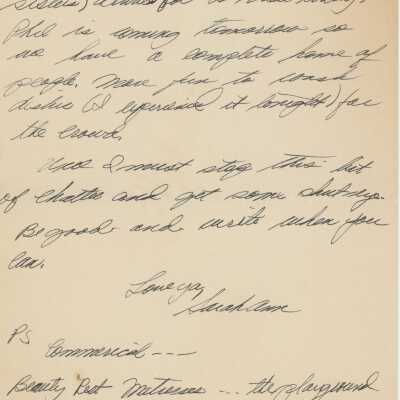 sisters)
Phil is coming tomorrow so
we have a complete home of
people. More fun to wash
dishes (I experienced it tonight) for
the crowd.
Well I must stop this bit
of chatter and get some shut-eye.
Be good and write when you
can.
Love ya,
Sarah Ann
PS
Commercial ---
Beauty Rest Mattress --- the playground